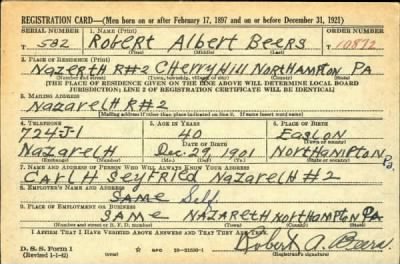 REGISTRATION CARD—(Men born on or after February 17, 1897 and on or before December 31, 1921)
SERIAL NUMBER 1. NAME (Print) ORDER NUMBER
T 532 Robert Albert Beers 10872
(First) (Middle) (Last)
2. PLACE OF RESIDENCE (Print)
Nazerth R#2 Cherry Hill Northampton PA
(Number and street) (Town, township, village, or city) (County) (State)
[THE PLACE OF RESIDENCE GIVEN ON THE LINE ABOVE WILL DETERMINE LOCAL BOARD
JURISDICTION; LINE 2 OF REGISTRATION CERTIFICATE WILL BE IDENTICAL]
3. MAILING ADDRESS
Nazareth R#2
[Mailing address if other than place indicated on line 2. If same insert word same]
4. TELEPHONE 5. AGE IN YEARS 6. PLACE OF BIRTH
724J-1 40 Easton
DATE OF BIRTH
Nazareth Dec. 29 1901 Northampton Pa.
(Exchange) (Number) (Mo.) (Day) (Yr.) (State or country)
7. NAME AND ADDRESS OF PERSON WHO WILL ALWAYS KNOW YOUR ADDRESS
Carl H Seyfried Nazareth #2
8. EMPLOYER'S NAME AND ADDRESS
Same Self
9. PLACE OF EMPLOYMENT OR BUSINESS
Same Nazareth Northampton PA
(Number and street or R. F. D. number) (Town) (County) (State)
I AFFIRM THAT I HAVE VERIFIED ABOVE ANSWERS AND THAT THEY ARE TRUE.
D. S. S. Form 1
(Revised 1-1-42) GPO 16-21630-1
Robert A. Beers
(Registrant's signature)